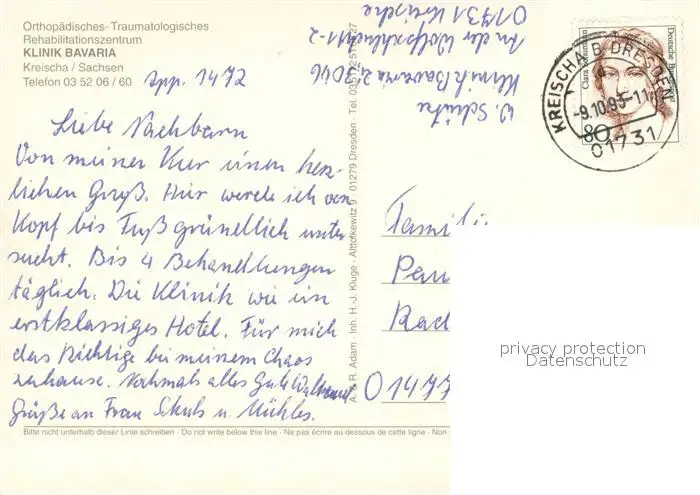 Orthopädisches-Traumatologisches
Rehabilitationszentrum
KLINIK BAVARIA
Kreischa / Sachsen
Telefon 03 52 06 / 60
App. 1472
Liebe Nachbarn
Von meiner Kur einen herz-
lichen Gruß. Hier werde ich von
Kopf bis Fuß gründlich unter
sucht. Bis 4 Behandlungen
täglich. Die Klinik wie ein
erstklassiges Hotel. Für mich
das Richtige bei meinem Chaos
zuhause. Nochmals alles Gute
Grüße an Frau u. Mühles.
Bitte nicht unterhalb dieser Linie schreiben · Do not write below this line · Ne pas écrire au dessous de cette ligne · Non
A. & R. Adam · Inh. H.-J. Kluge · Alttolkewitz 9 · 01279 Dresden · Tel.
W. Schütze
Klinik Bavaria
An der Wolfsschlucht 1-2
01731 Kreischa
Deutsche Bundespost
Clara Schumann
80
KREISCHA B DRESDEN
-9.10.95-11
01731
Famili
Pau
Rad
01477
privacy protection
Datenschutz